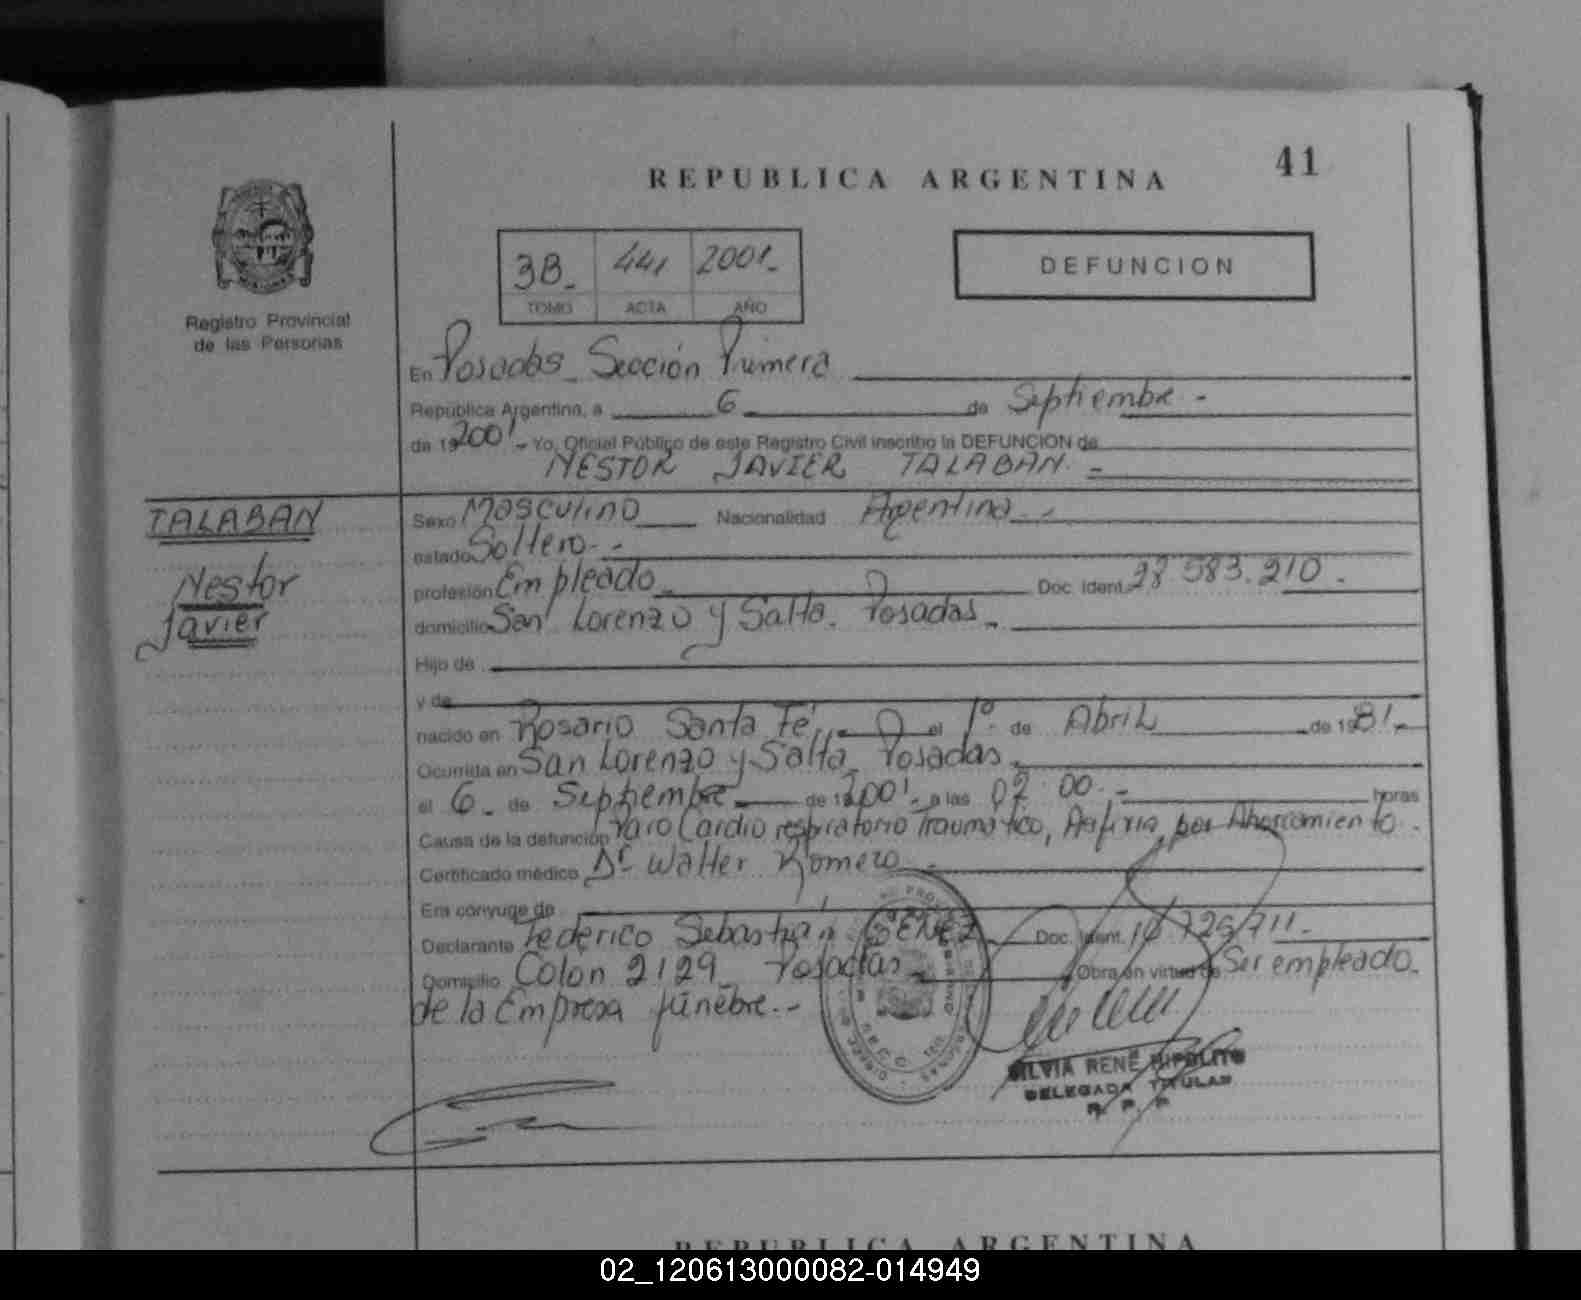 41
REPUBLICA ARGENTINA
3B_ 441 2001_
TOMO ACTA AÑO
DEFUNCION
Registro Provincial
de las Personas
En Posadas_ Sección Primera
República Argentina, a 6 de Septiembre -
de 19 2001_ Yo, Oficial Público de este Registro Civil inscribo la DEFUNCION de
NESTOR JAVIER TALABAN. -
TALABAN
Nestor
Javier
Sexo Masculino Nacionalidad Argentina. -
estado Soltero. -
profesión Empleado_ Doc. Ident. 28.583.210. -
domicilio San Lorenzo y Salta. Posadas_
Hijo de
y de
nacido en Rosario Santa Fé, el 1º de Abril de 19 81. -
Ocurrida en San Lorenzo y Salta_ Posadas.
el 6_ de Septiembre de 19 2001_ a las 02 00. - horas
Causa de la defunción Paro Cardio respiratorio Traumático, Asfixia, por Ahorcamiento.
Certificado médico Dr Walter Romero
Era cónyuge de
Declarante Federico Sebastián Doc. Ident.
Domicilio Colon 2129_ Posadas_ Obra en virtud de Ser empleado.
de la Empresa fúnebre. -
SILVIA RENÉ HIPOLITO
DELEGADA TITULAR
R. P. P.
REPUBLICA ARGENTINA
02_120613000082-014949